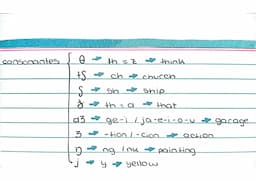 consonantes
θ → th = z → think
tʃ → ch → church
ʃ → sh → ship
ð → th = a → that
dʒ → ge-i / ja-e-i-o-u → garage
ʒ → -tion / -cion → action
ŋ → ng / nk → painting
j → y → yellow